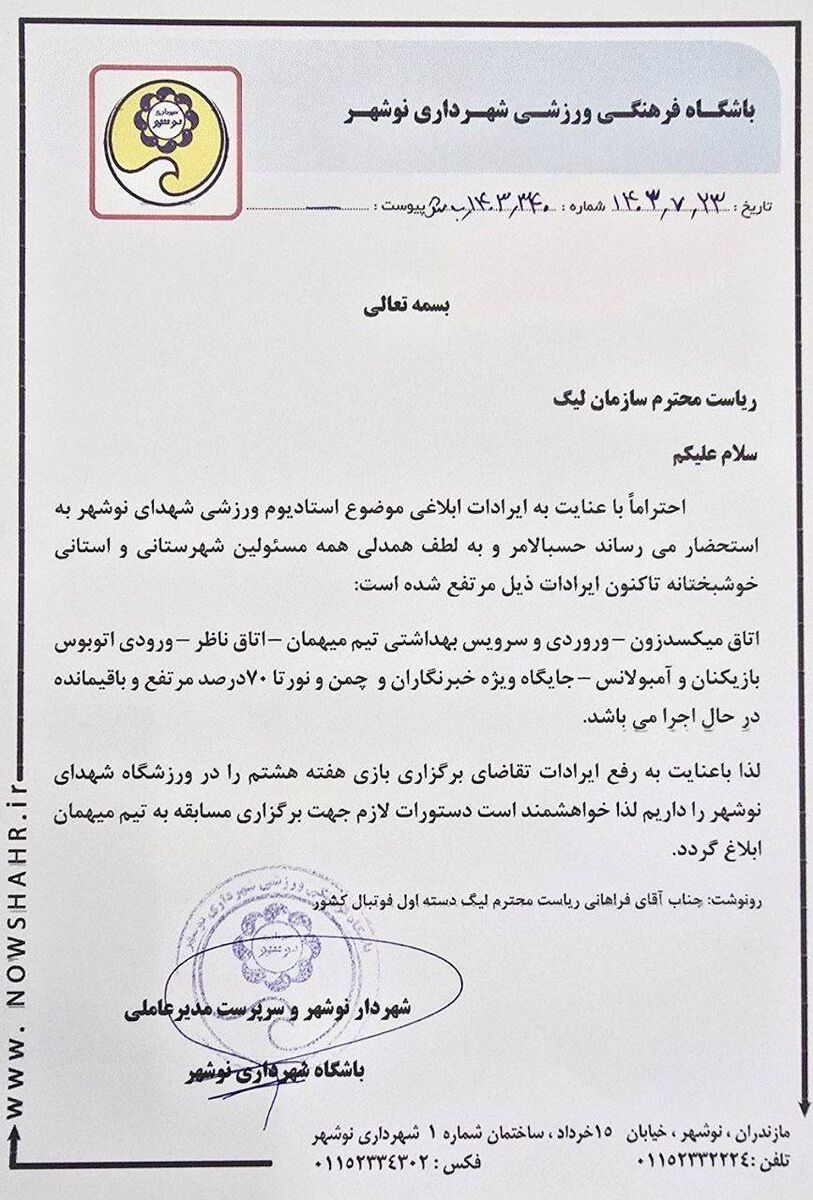 باشگاه فرهنگی ورزشی شهرداری نوشهر
شهرداری نوشهر
تاریخ : ۱۴۰۳٫۷٫۲۳ شماره : ۱۴۰۳٫۳۴۰ پیوست :
بسمه تعالی
ریاست محترم سازمان لیگ
سلام علیکم
احتراماً با عنایت به ایرادات ابلاغی موضوع استادیوم ورزشی شهدای نوشهر به
استحضار می رساند حسبالامر و به لطف همدلی همه مسئولین شهرستانی و استانی
خوشبختانه تاکنون ایرادات ذیل مرتفع شده است:
اتاق میکسدزون –وروردی و سرویس بهداشتی تیم میهمان –اتاق ناظر –ورودی اتوبوس
بازیکنان و آمبولانس –جایگاه ویژه خبرنگاران و چمن و نورتا ۷۰درصد مرتفع و باقیمانده
در حال اجرا می باشد.
لذا باعنایت به رفع ایرادات تقاضای برگزاری بازی هفته هشتم را در ورزشگاه شهدای
نوشهر را داریم لذا خواهشمند است دستورات لازم جهت برگزاری مسابقه به تیم میهمان
ابلاغ گردد.
رونوشت: جناب آقای فراهانی ریاست محترم لیگ دسته اول فوتبال کشور
باشگاه فرهنگی ورزشی شهرداری نوشهر
شهردار نوشهر و سرپرست مدیرعاملی
باشگاه شهرداری نوشهر
مازندران ، نوشهر ، خیابان ۱۵خرداد ، ساختمان شماره ۱ شهرداری نوشهر
تلفن :۰۱۱۵۲۳۳۲۲۲۴ فکس : ۰۱۱۵۲۳۳۴۳۰۲
www. NOWSHAHR.ir